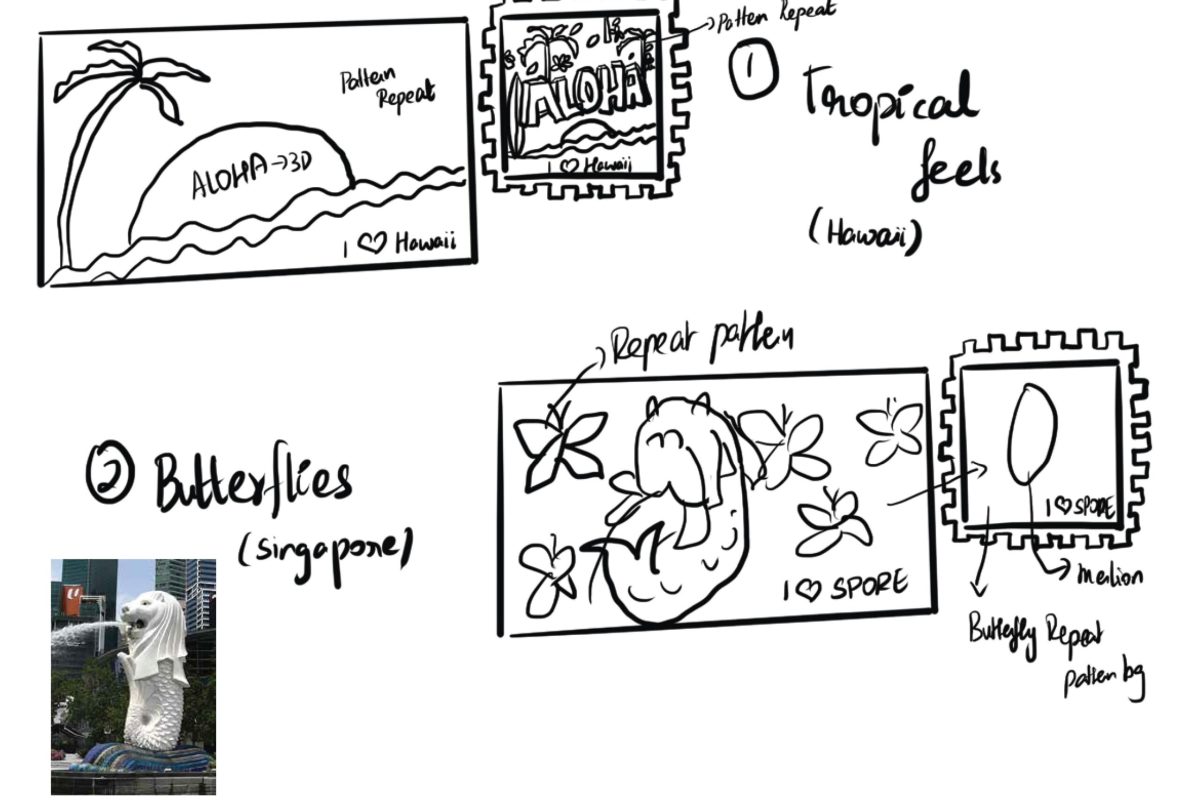 Pattern
Repeat
ALOHA→3D
I ♡ Hawaii
Patten Repeat
ALOHA
I ♡ Hawaii
①
Tropical
feels
(Hawaii)
Repeat patten
I ♡ SPORE
② Butterflies
(Singapore)
I ♡ SPORE
merlion
Butterfly Repeat
patten bg